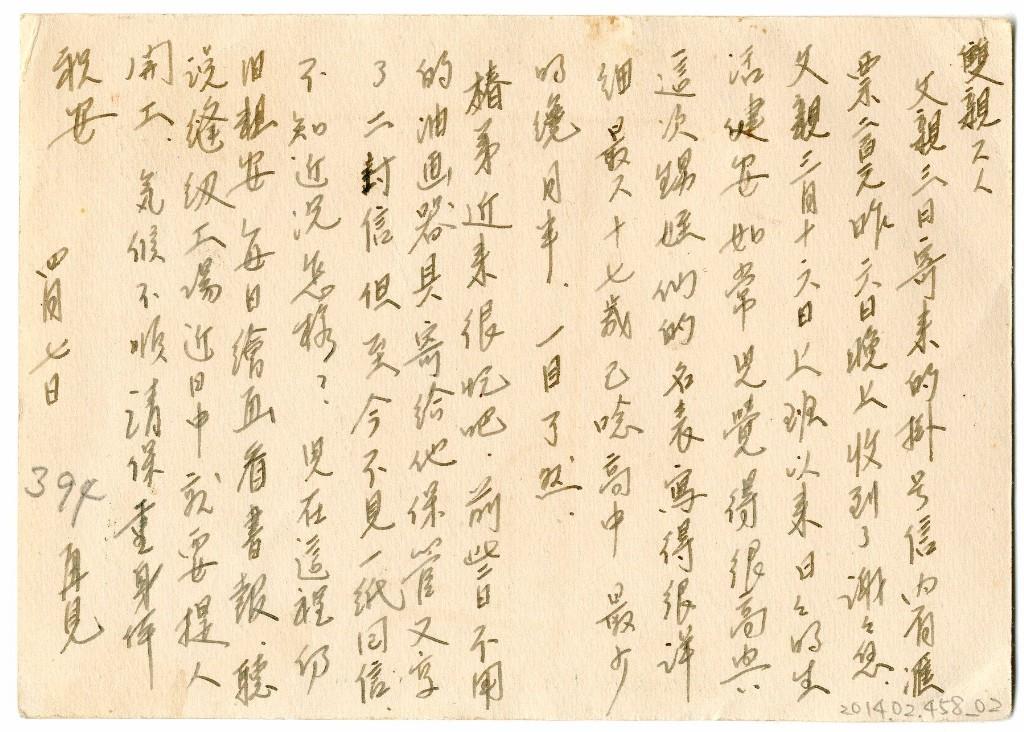 雙親大人
父親三日寄来的掛号信内有滙
票二百元昨六日晚上收到了謝々您
父親三月十六日上班以来日々的生
活健安如常児覺得很高興
這次甥姪們的名表寫得很詳
細 最大十七歳已唸高中 最少
的纔月半．一目了然．
椿弟近来很忙吧．前些日不用
的油画器具寄給他保管又享
了二封信但至今不見一紙回信．
不知近况怎樣？児在這裡仍
旧粗安每日繪画看書報．聽
说縫级工場近日中就要提人
開工．気候不順請保重身体
祝安
四月七日
394 再見
2014.02.458_02